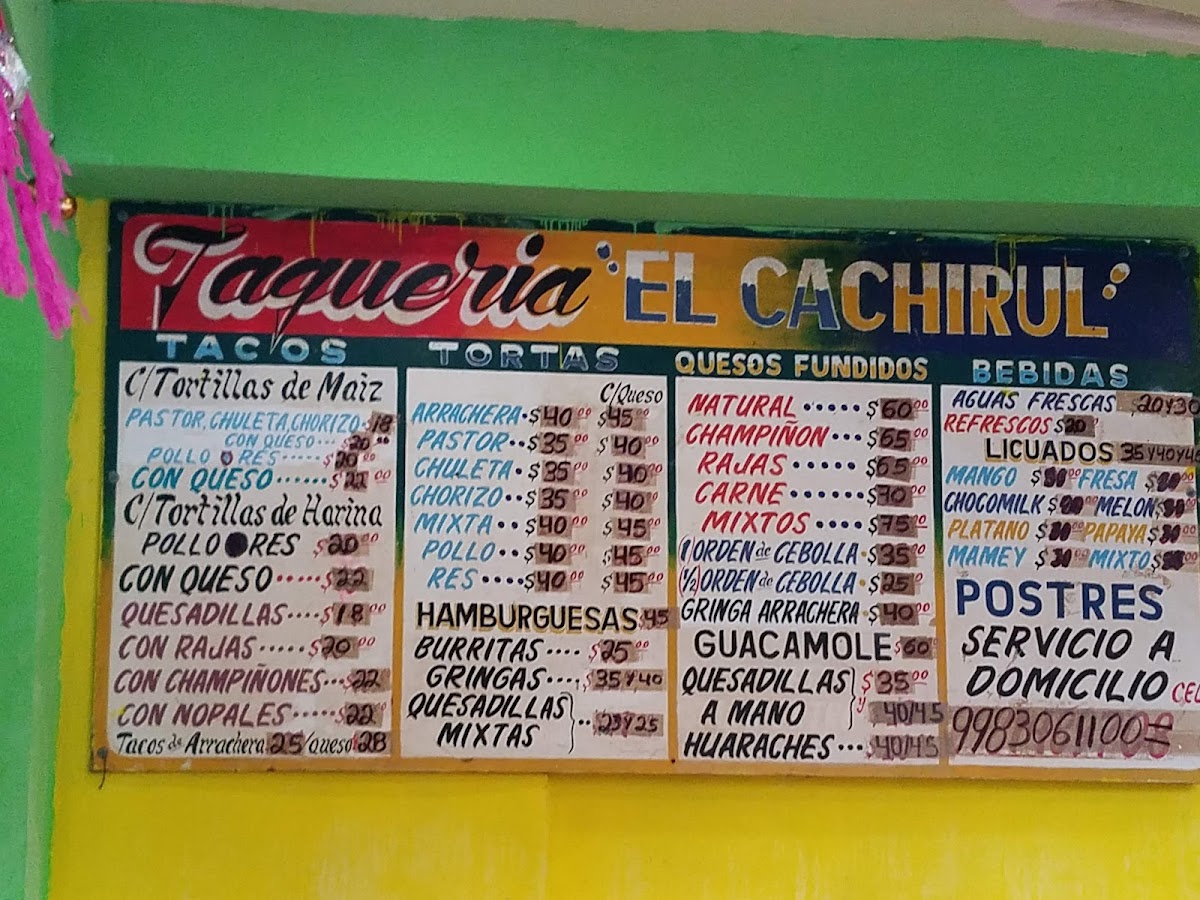 Taqueria "EL CACHIRUL"
TACOS
C/Tortillas de Maiz
PASTOR, CHULETA, CHORIZO $18
CON QUESO... $20.00
POLLO O RES..... $20.00
CON QUESO....... $22.00
C/Tortillas de Harina
POLLO RES $20.00
CON QUESO..... $22
QUESADILLAS.... $18.00
CON RAJAS..... $20.00
CON CHAMPIÑONES... $22
CON NOPALES..... $22
Tacos de Arrachera 25/queso $28
TORTAS
C/Queso
ARRACHERA. $40.00 $45.00
PASTOR.. $35.00 $40.00
CHULETA. $35.00 $40.00
CHORIZO.. $35.00 $40.00
MIXTA.. $40.00 $45.00
POLLO.. $40.00 $45.00
RES.... $40.00 $45.00
HAMBURGUESAS $45
BURRITAS.... $25.00
GRINGAS.... $35 Y 40
QUESADILLAS
MIXTAS
QUESOS FUNDIDOS
NATURAL..... $60.00
CHAMPIÑON... $65.00
RAJAS..... $65.00
CARNE.... $70.00
MIXTOS.... $75.00
(1) ORDEN de CEBOLLA. $35.00
(1/2) ORDEN de CEBOLLA. $25.00
GRINGA ARRACHERA. $40.00
GUACAMOLE $60
QUESADILLAS $35.00
A MANO Y 40/45
HUARACHES... $40/45
BEBIDAS
AGUAS FRESCAS
REFRESCOS $20
LICUADOS 35 Y 40 Y 45
MANGO FRESA
CHOCOMILK MELON
PLATANO PAPAYA
MAMEY MIXTO
POSTRES
SERVICIO A
DOMICILIO
9983061100